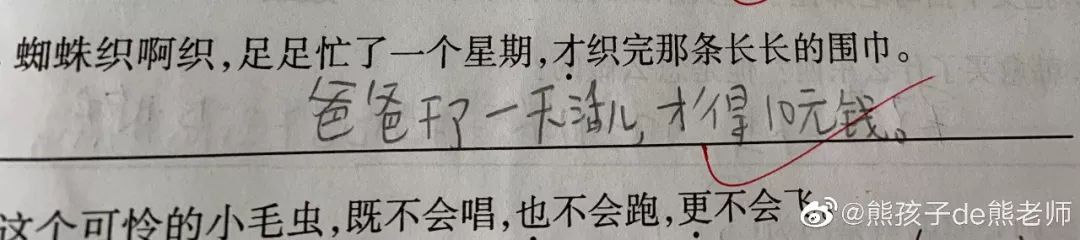 蜘蛛织啊织,足足忙了一个星期,才织完那条长长的围巾。
爸爸干了一天活儿,才得10元钱。
这个可怜的小毛虫,既不会唱,也不会跑,更不会飞。
@熊孩子de熊老师